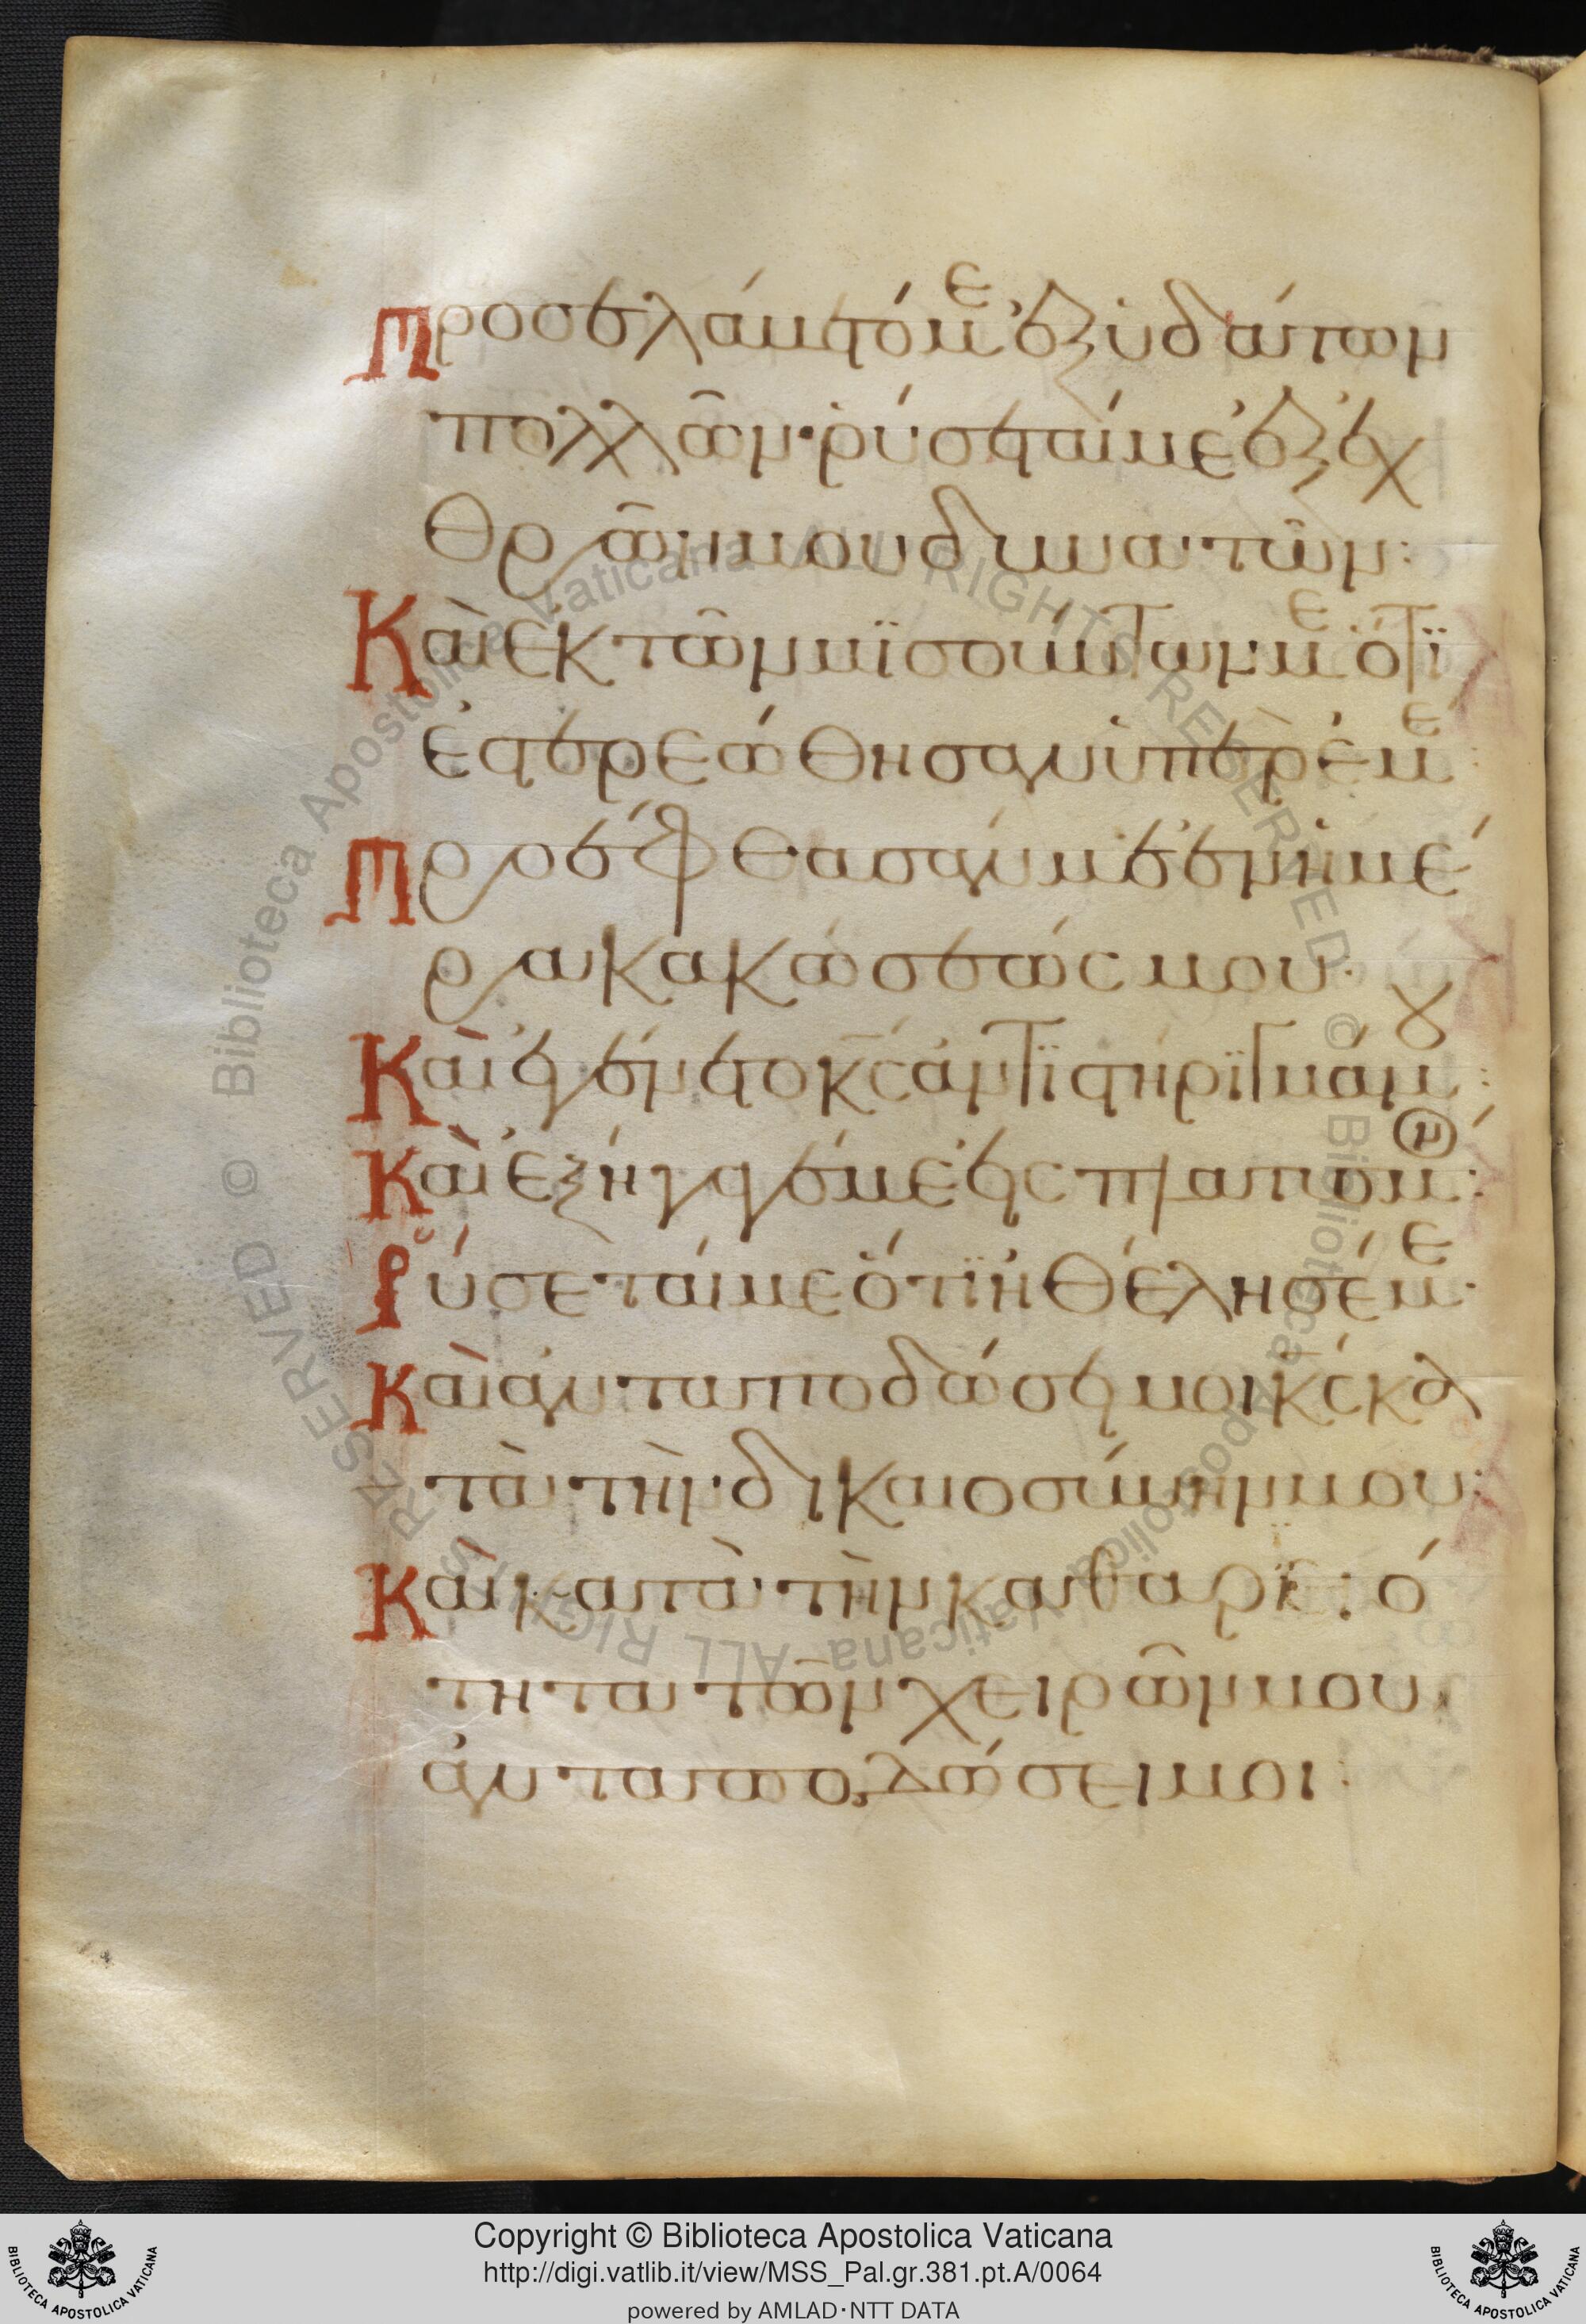 Προσελάβετό με ἐξ ὑδάτων
πολλῶν· ῥύσεταί με ἐξ ἐχ
θρῶν μου δυνατῶν:
Καὶ ἐκ τῶν μϊσούντων με ὅτϊ
ἐστερεώθησαν ὑπὲρ ἐμέ:
Προέφθασάν με ἐν ἡμέ
ρα κακώσεώς μου·
Καὶ ἐγένετο κ̅ς̅ ἀντϊστήρϊγμά μου:
Καὶ ἐξήγαγέν με εἰς πλατυσμόν:
Ῥύσεταί με ὅτϊ ἠθέλησέ με·
Καὶ ἀνταποδώσει μοι κ̅ς̅ κα
τὰ τὴν δικαιοσύνην μου:
Καὶ κατὰ τὴν καθαρϊό
τητα τῶν χειρῶν μου
ἀνταποδώσει μοι:
Copyright © Biblioteca Apostolica Vaticana
http://digi.vatlib.it/view/MSS_Pal.gr.381.pt.A/0064
powered by AMLAD·NTT DATA
BIBLIOTECA APOSTOLICA VATICANA
BIBLIOTECA APOSTOLICA VATICANA
© Biblioteca Apostolica Vaticana ALL RIGHTS RESERVED
© Biblioteca Apostolica Vaticana ALL RIGHTS RESERVED